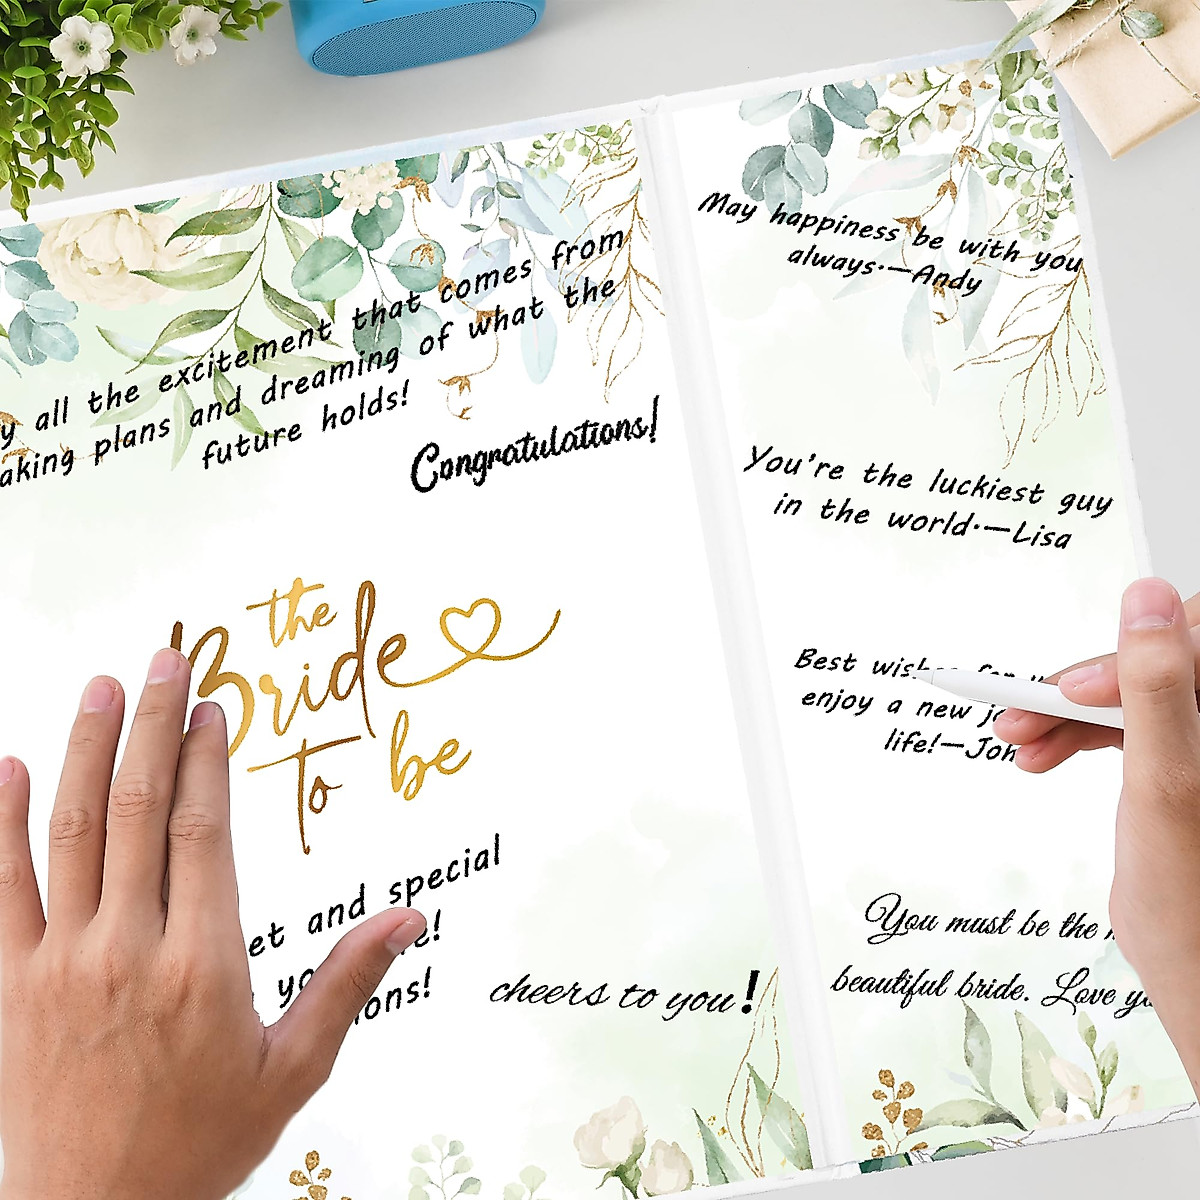 all the excitement that comes from
plans and dreaming of what the
future holds!
Congratulations!
the
Bride
to be
and special
cheers to you!
May happiness be with you
always.—Andy
You're the luckiest guy
in the world.—Lisa
Best
enjoy a new
life!—
You must be the
beautiful bride. Love